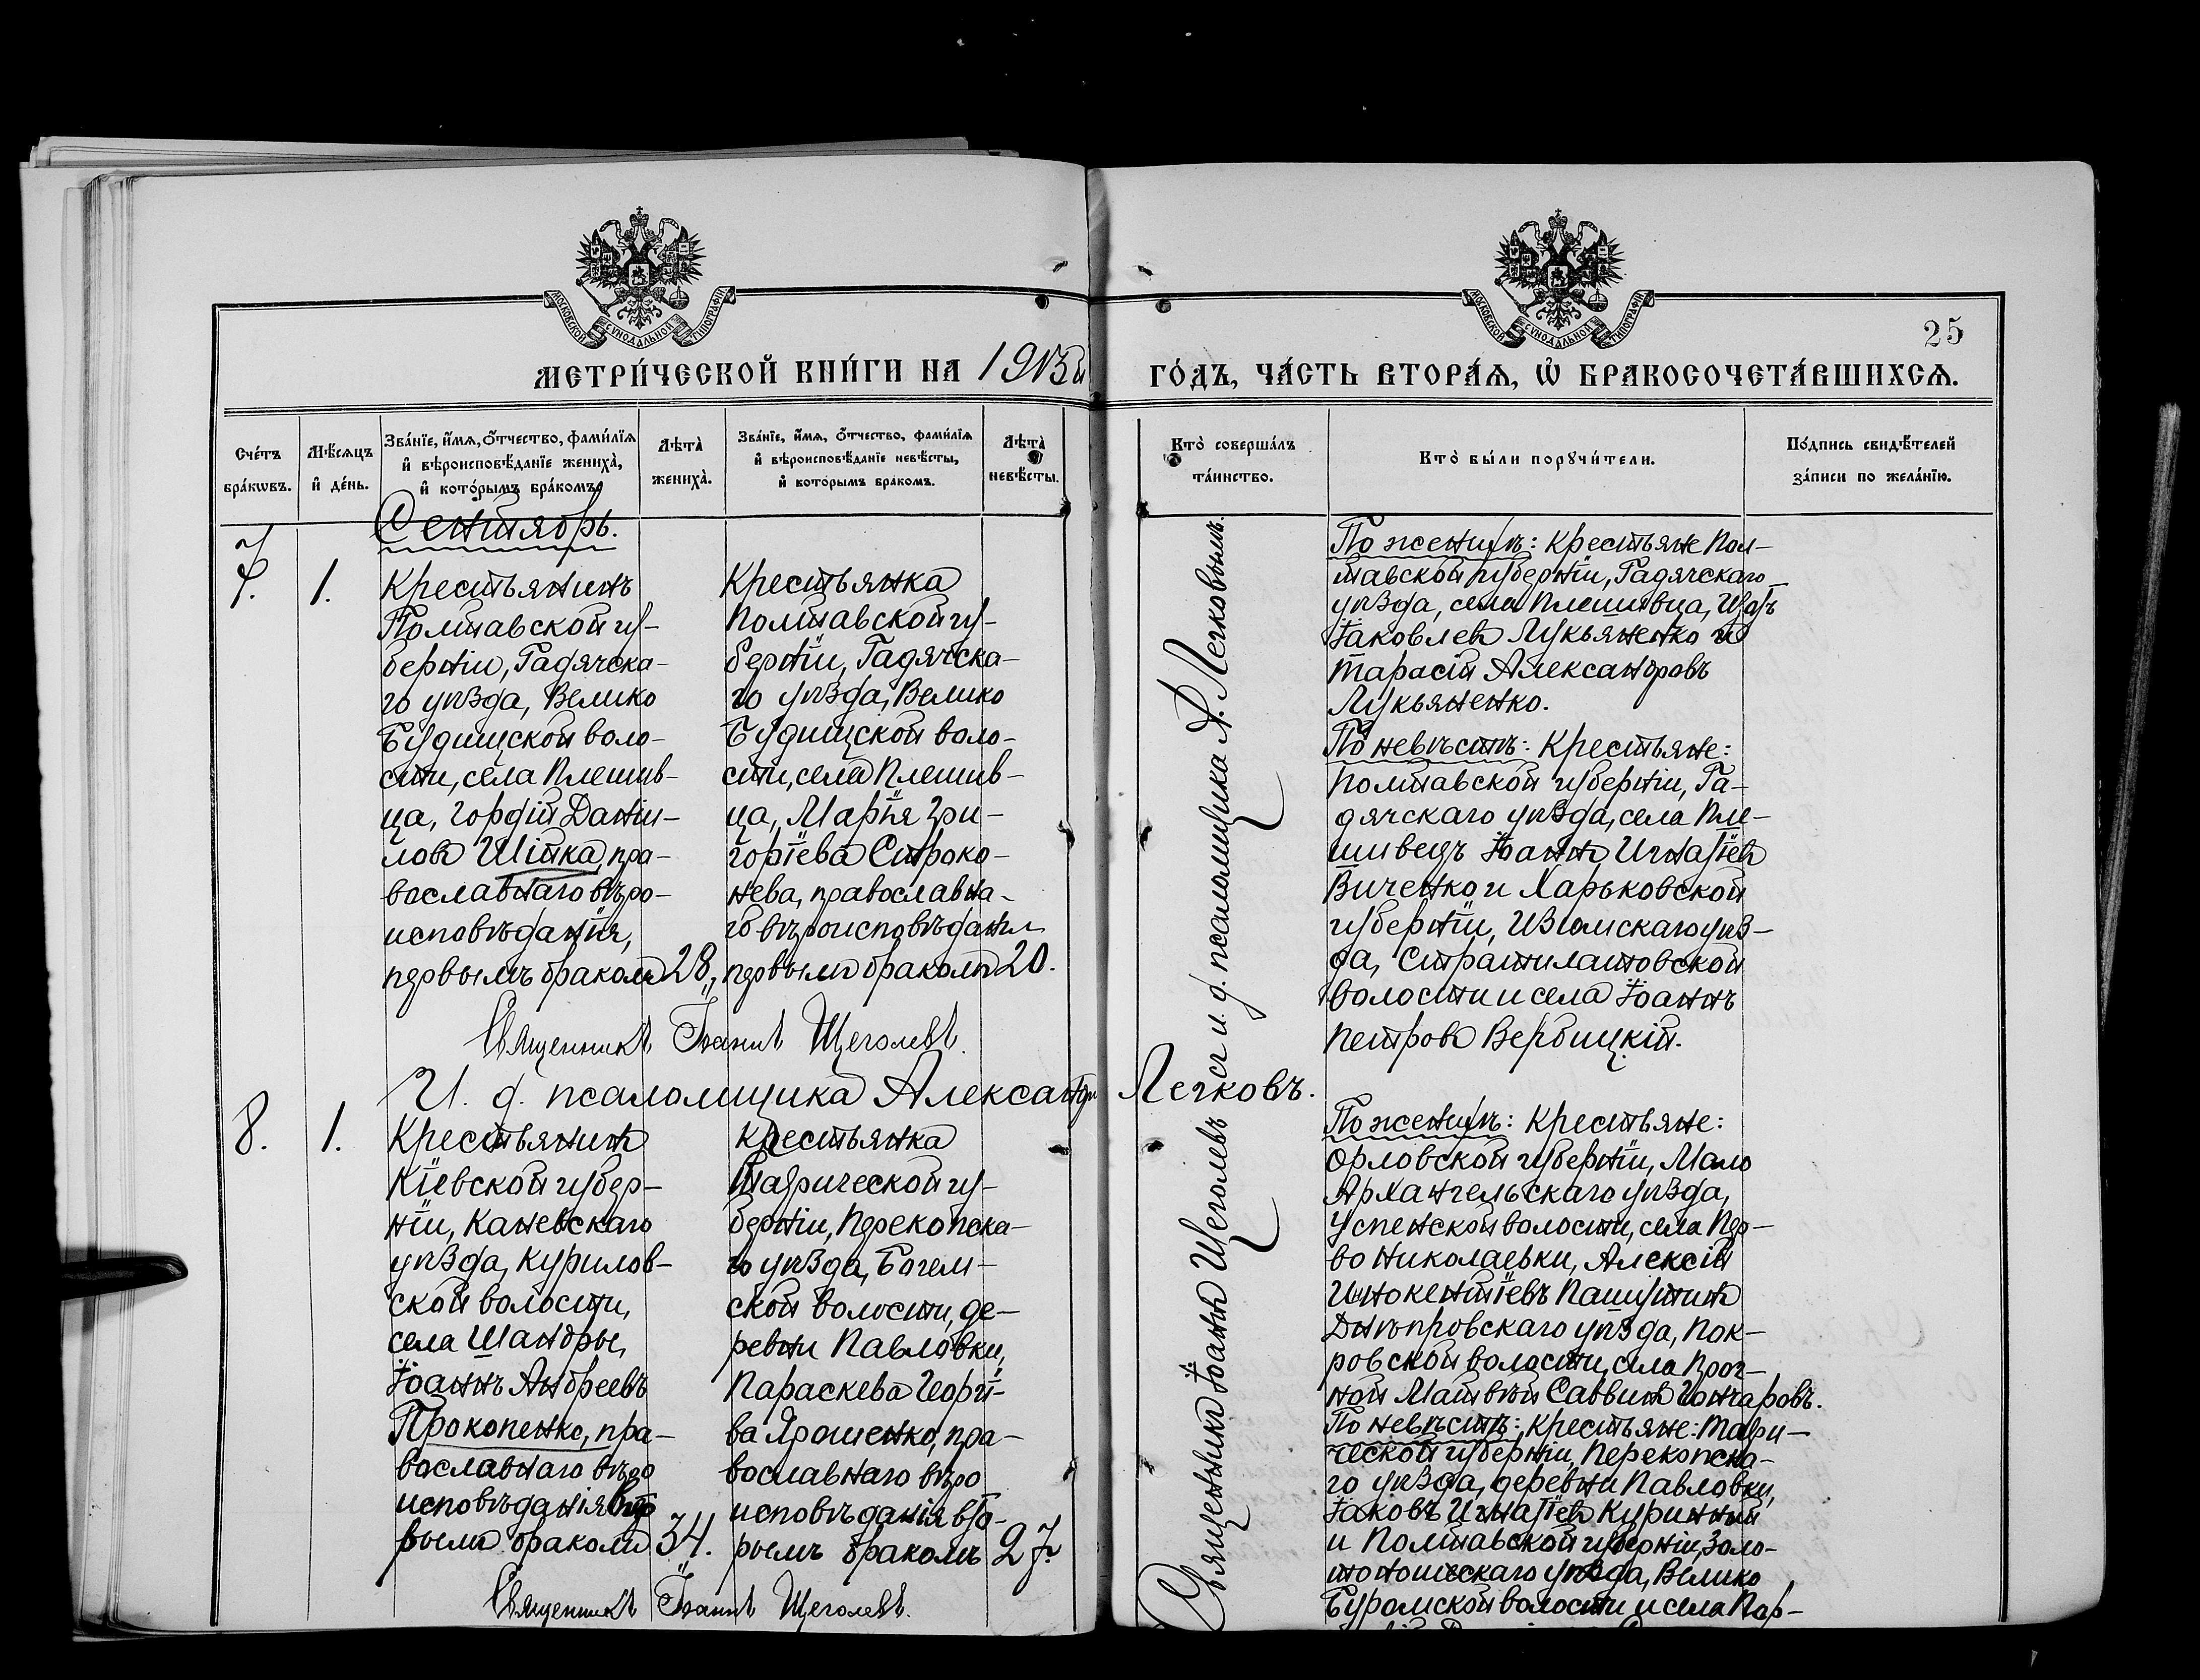 МОСКОВСКОЙ СУНОДАЛЬНОЙ ТИПОГРАФІИ
МОСКОВСКОЙ СУНОДАЛЬНОЙ ТИПОГРАФІИ
25
МЕТРИ́ЧЕСКОЙ КНИ́ГИ НА 1915й ГО́ДЪ, ЧА́СТЬ ВТОРА́Ѧ, Ѡ҆ БРАКОСОЧЕТА́ВШИХСѦ.
Сче́тъ бра́кѡвъ.
Мѣ́сяцъ и҆ де́нь.
Зва́нїе, и҆́мѧ, ѻ҆́тчество, фами́лїѧ и҆ вѣроисповѣ́данїе жениха̀, и҆ кото́рымъ бра́комъ.
Лѣта̀ жениха̀.
Зва́нїе, и҆́мѧ, ѻ҆́тчество, фами́лїѧ и҆ вѣроисповѣ́данїе невѣ́сты, и҆ кото́рымъ бракомъ.
Лѣта̀ невѣ́сты.
Кто̀ соверша́лъ та́инство.
Кто̀ бы́ли порꙋчи́тели.
По́дпись свидѣ́телей за́писи по жела́нїю.
Сентябрь.
7.
1.
Крестьянинъ
Полтавской гу-
берніи, Гадячска-
го уѣзда, Велико
Будищской воло-
сти, села Плешив-
ца, Гордій Дані-
ловъ Шітка, пра-
вославнаго вѣро-
исповѣданія,
первымъ бракомъ
28.
Крестьянка
Полтавской гу-
берніи, Гадячска-
го уѣзда, Велико
Будищской воло-
сти, села Плешив-
ца, Марія Гри-
горіева Строко-
нева, православна-
го вѣроисповѣданія
первымъ бракомъ
20.
Священникъ Іоаннъ Щеголевъ.
И. д. псаломщика Александръ Легковъ.
Священникъ Іоаннъ Щеголевъ съ и. д. псаломщика А. Легковымъ.
По женихѣ: Крестьяне Пол-
тавской губерніи, Гадячскаго
уѣзда, села Плешивца,
Іаковлевъ Лукьяненко и
Тарасій Александровъ
Лукьяненко.
По невѣстѣ: Крестьяне:
Полтавской губерніи, Га-
дячскаго уѣзда, села Пле-
шивецъ Іоаннъ Игнатіевъ
Виченко и Харьковской
губерніи, Изюмскаго уѣз-
да, Стратилатовской
волости и села Іоаннъ
Петровъ Вербицкій.
8.
1.
Крестьянинъ
Кіевской губер-
ніи, Каневскаго
уѣзда, Курилов-
ской волости,
села Шандры,
Іоаннъ Андреевъ
Прокопенко, пра-
вославнаго вѣро
исповѣданія вто
рымъ бракомъ
34.
Крестьянка
Таврической гу-
берніи, Перекопска-
го уѣзда, Богем-
ской волости, де-
ревни Павловки,
Параскева Георгі-
ва Ярошенко, пра-
вославнаго вѣро
исповѣданія вто-
рымъ бракомъ
27.
Священникъ Іоаннъ Щеголевъ.
По женихѣ: Крестьяне:
Орловской губерніи, Мало
Архангельскаго уѣзда,
Успенской волости, села Пер-
во Николаевки, Алексій
Инокентіевъ Пашутинъ
Днѣпровскаго уѣзда, Пок-
ровской волости, села Прог-
ной Матвѣй Саввинъ Гончаровъ.
По невѣстѣ: Крестьяне: Таври-
ческой губерніи, Перекопска-
го уѣзда, деревни Павловки,
Іаковъ Игнатіевъ Куринный
и Полтавской губерніи, Золо-
тоношскаго уѣзда, Велико
Буромской волости и села Пар-